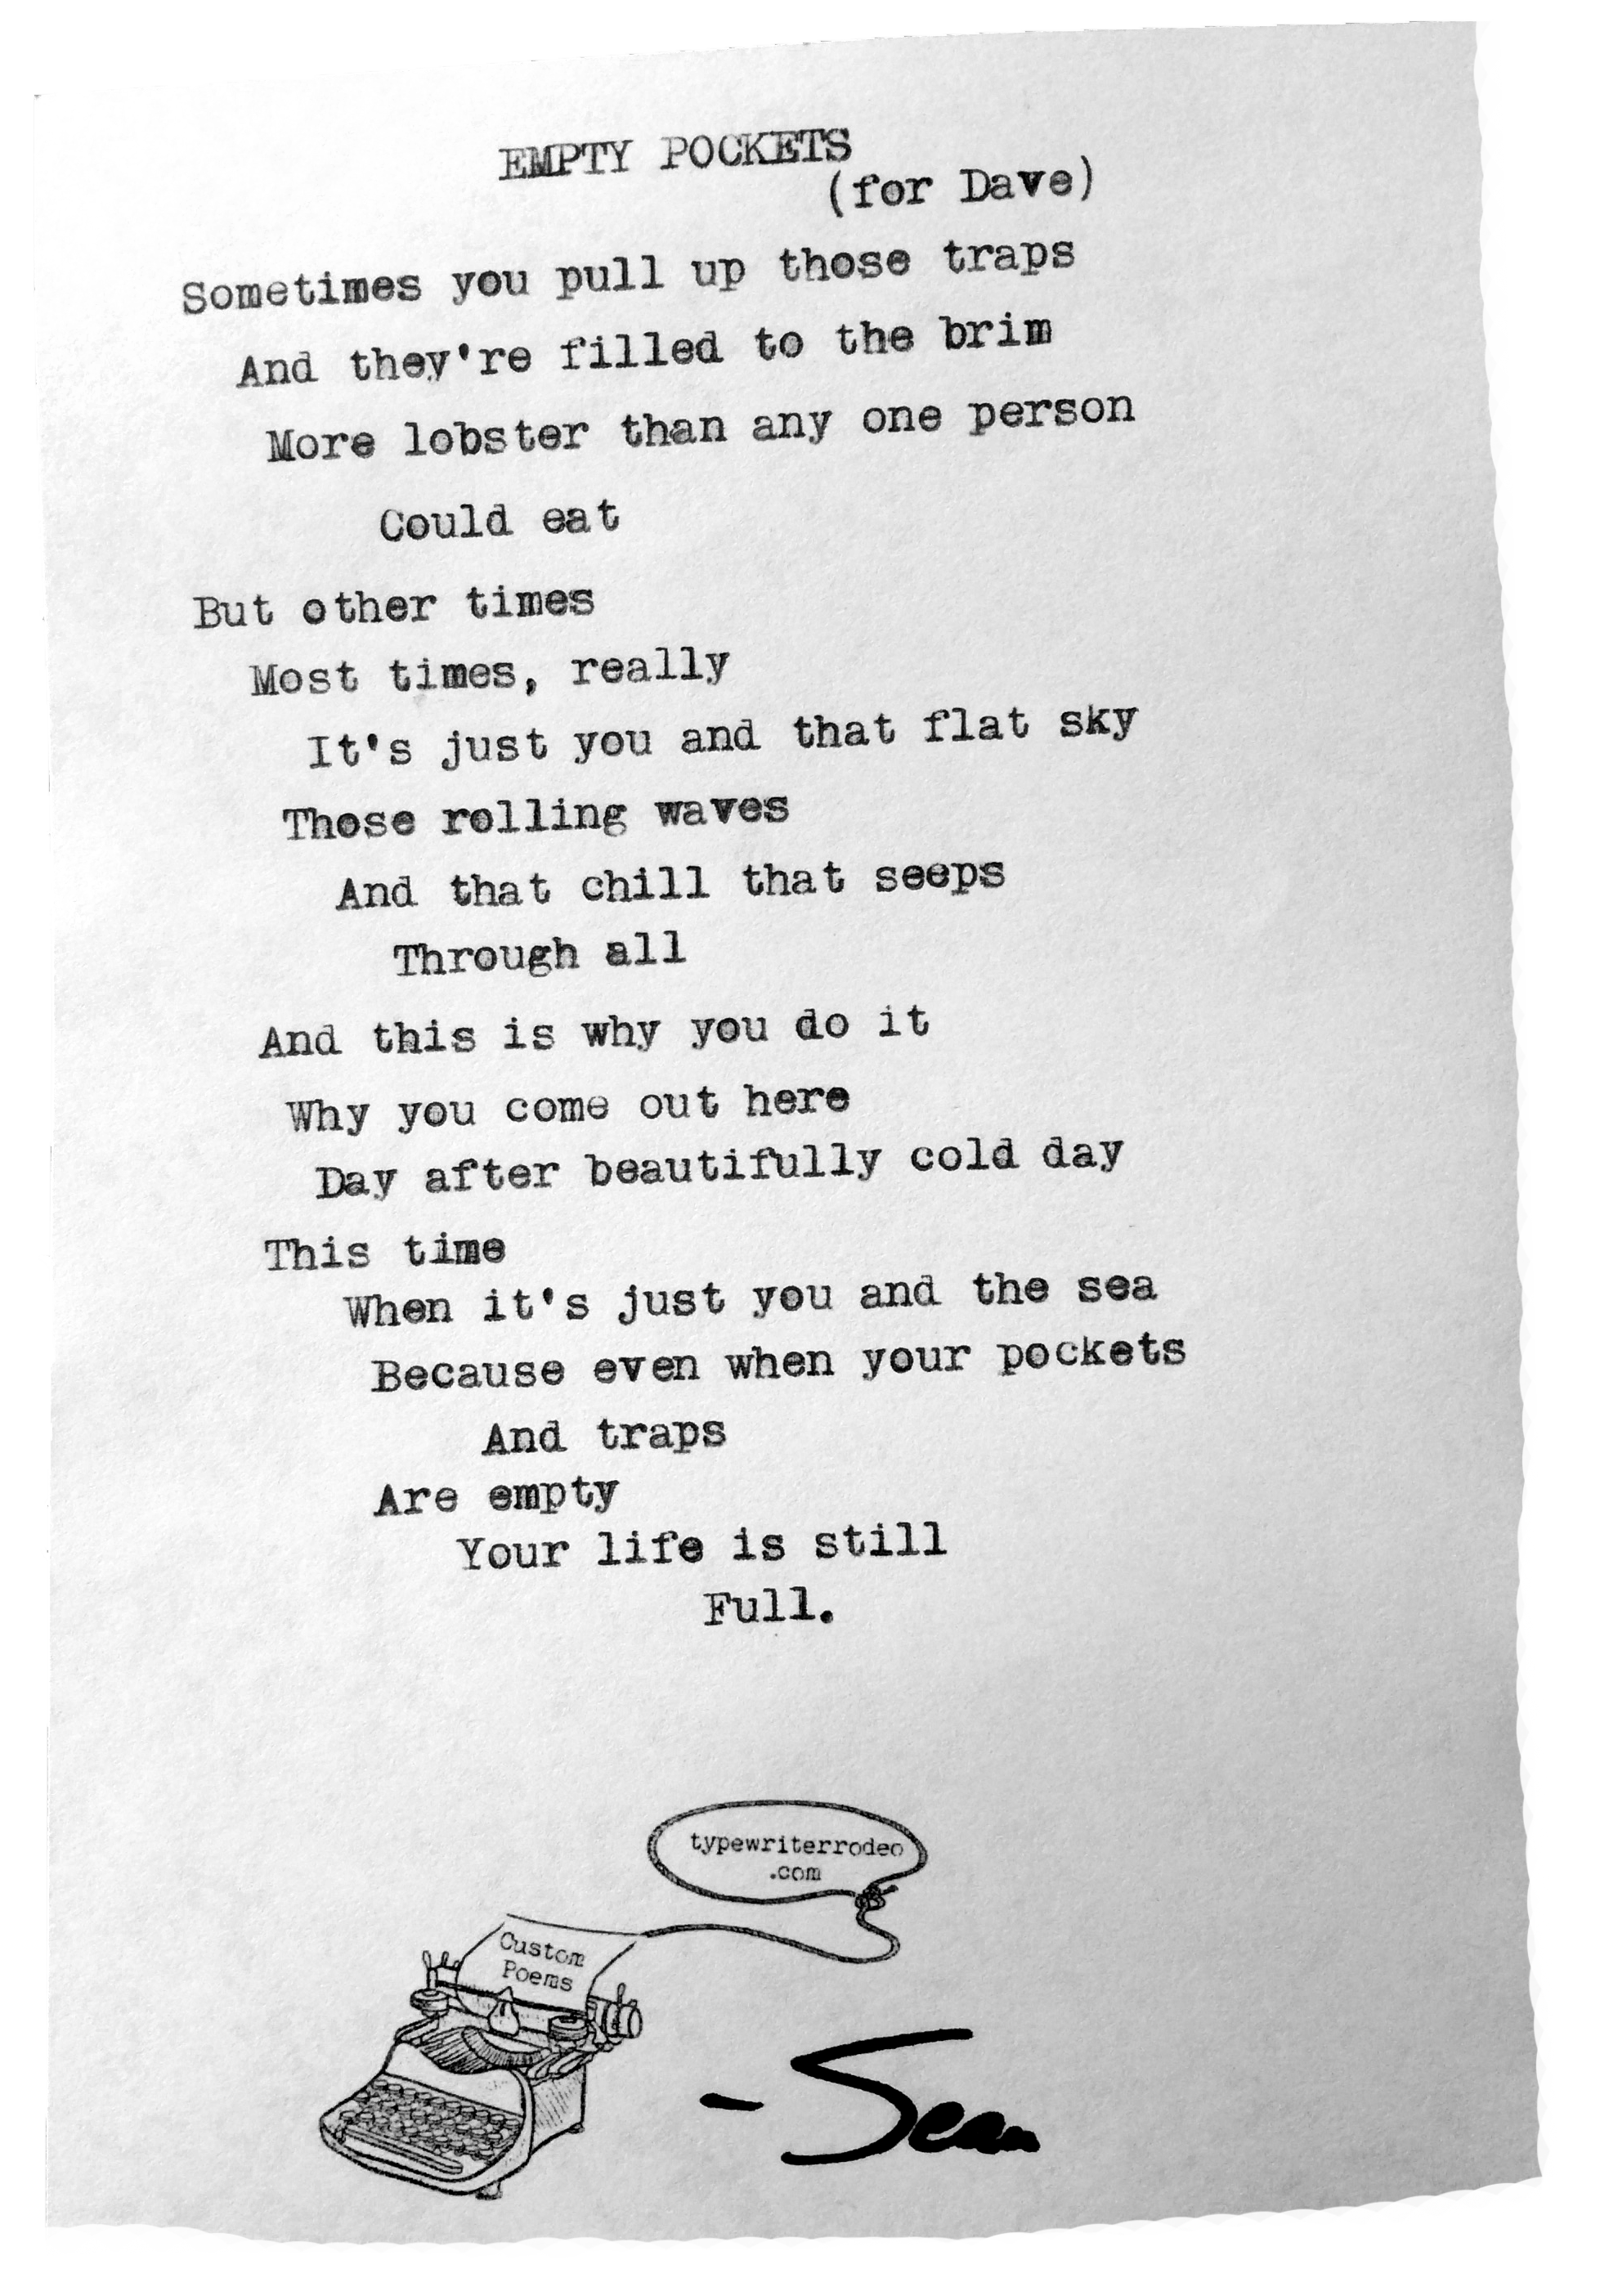 EMPTY POCKETS
(for Dave)
Sometimes you pull up those traps
And they're filled to the brim
More lobster than any one person
Could eat
But other times
Most times, really
It's just you and that flat sky
Those rolling waves
And that chill that seeps
Through all
And this is why you do it
Why you come out here
Day after beautifully cold day
This time
When it's just you and the sea
Because even when your pockets
And traps
Are empty
Your life is still
Full.
typewriterrodeo
.com
Custom
Poems
-Sean